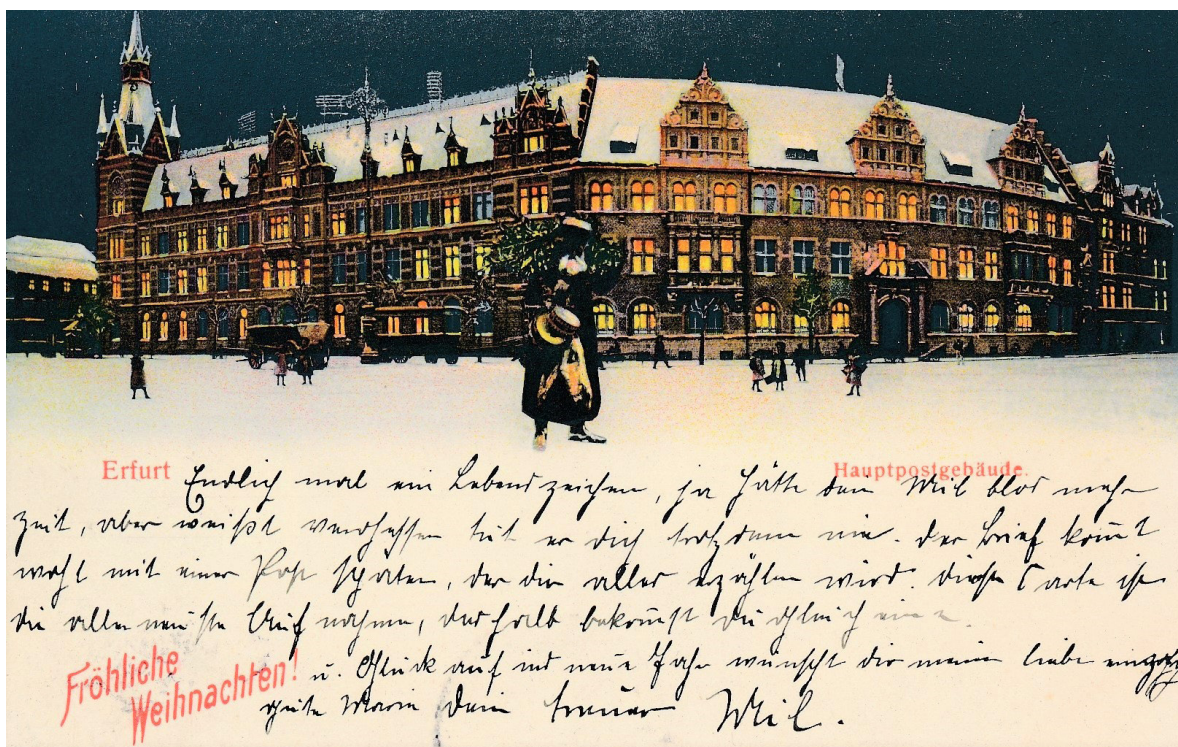 Erfurt
Hauptpostgebäude.
Endlich mal ein Lebenszeichen, ja hätte dein Wil blos mehr
Zeit, aber weißt vergessen tut er dich trotzdem nie. Der Brief kom̅t
wohl mit einer Post später, der dir alles erzählen wird. Diese Carte ist
die allerneuste Aufnahme, deshalb bekom̅st du gleich eine.
Fröhliche
Weihnachten!
u. Glück auf ins neue Jahr wünscht dir meine liebe
gute Marie Dein treuer Wil.